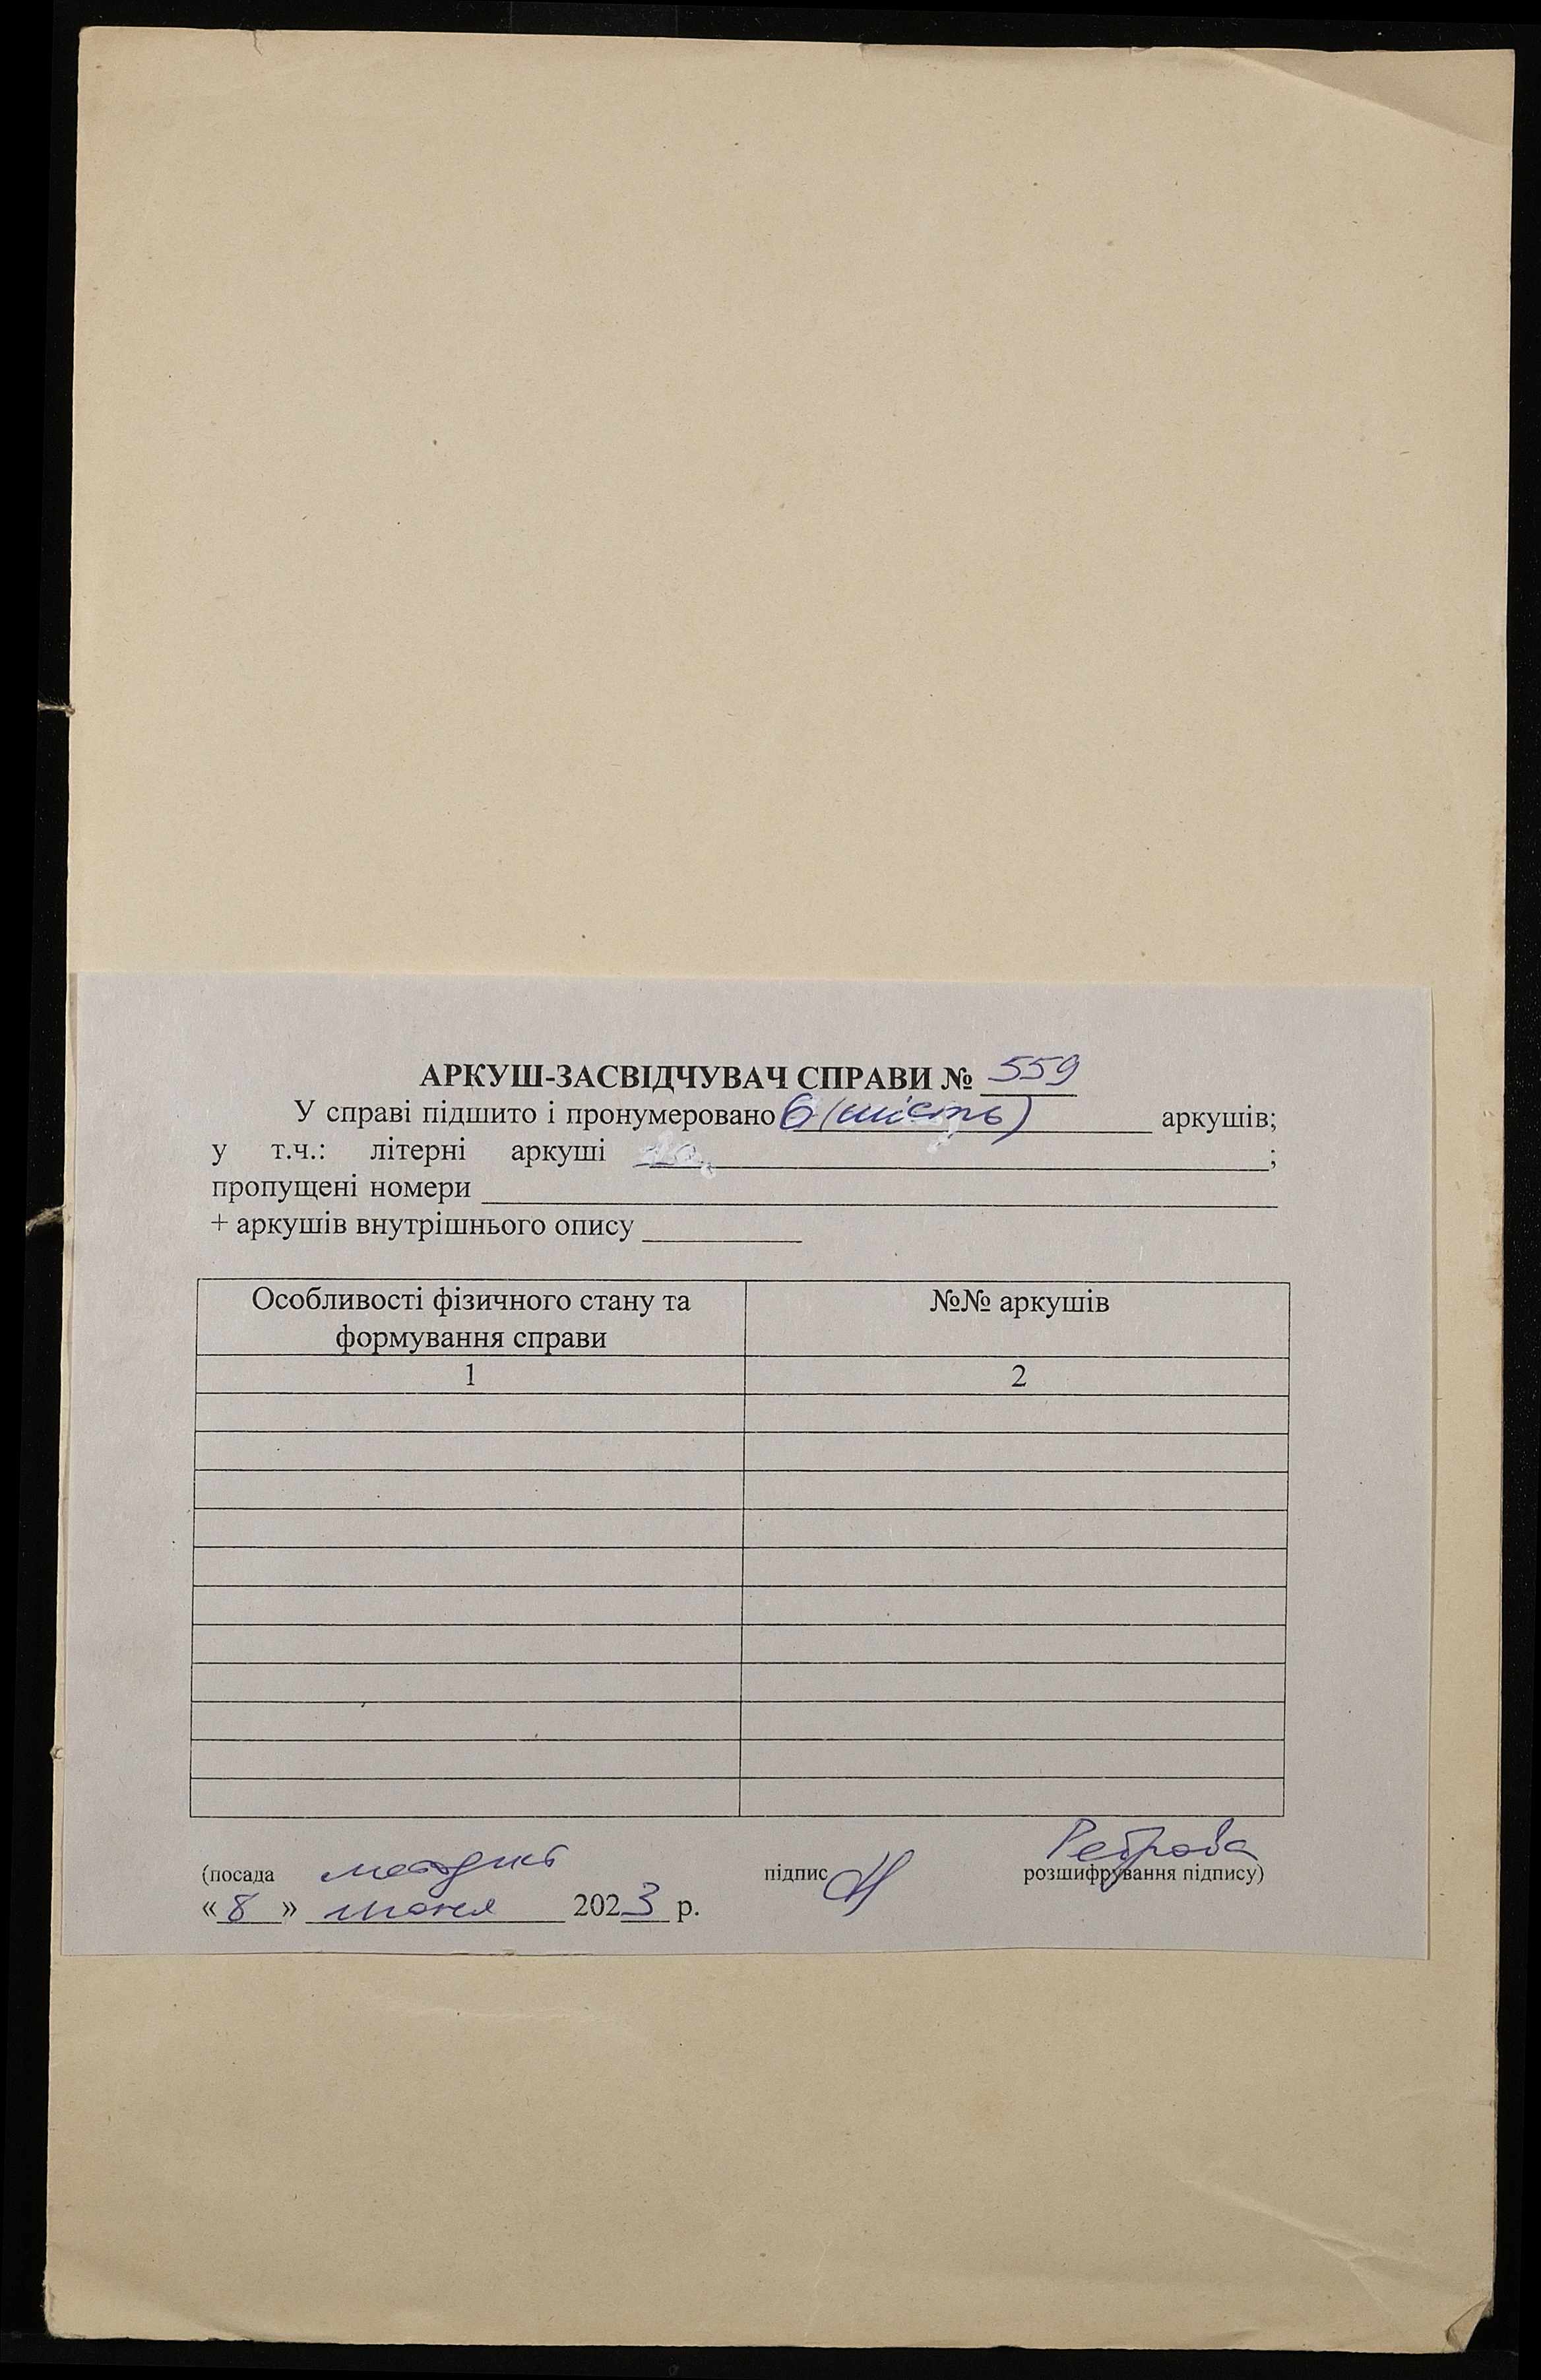 АРКУШ-ЗАСВІДЧУВАЧ СПРАВИ № 559
У справі підшито і пронумеровано 6 (шість) аркушів;
у т.ч.: літерні аркуші ;
пропущені номери
+ аркушів внутрішнього опису
Особливості фізичного стану та №№ аркушів
формування справи
1 2
Реброва
(посада підпис розшифрування підпису)
«8» 2023 р.